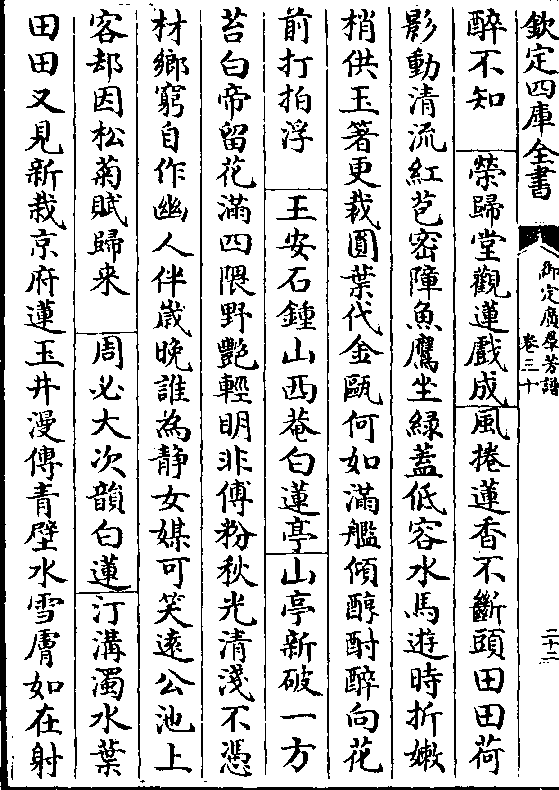 欽定四庫全書
御定廣羣芳譜
卷三十
二十二
醉不知　榮歸堂觀蓮戲成風捲蓮香不斷頭田田荷
影動清流紅苞密障魚鷹坐緑葢低容水馬遊時折嫩
梢供玉箸更裁圓葉代金甌何如滿艦傾醇酎醉向花
前打拍浮　王安石鍾山西菴白蓮亭山亭新破一方
苔白帝留花滿四隈野艷輕明非傅粉秋光清淺不憑
材鄉窮自作幽人伴歳晚誰為静女媒可笑遠公池上
客却因松菊賦歸来　周必大次韻白蓮汀溝濁水葉
田田又見新栽京府蓮玉井漫傳青壁水雪膚如在射